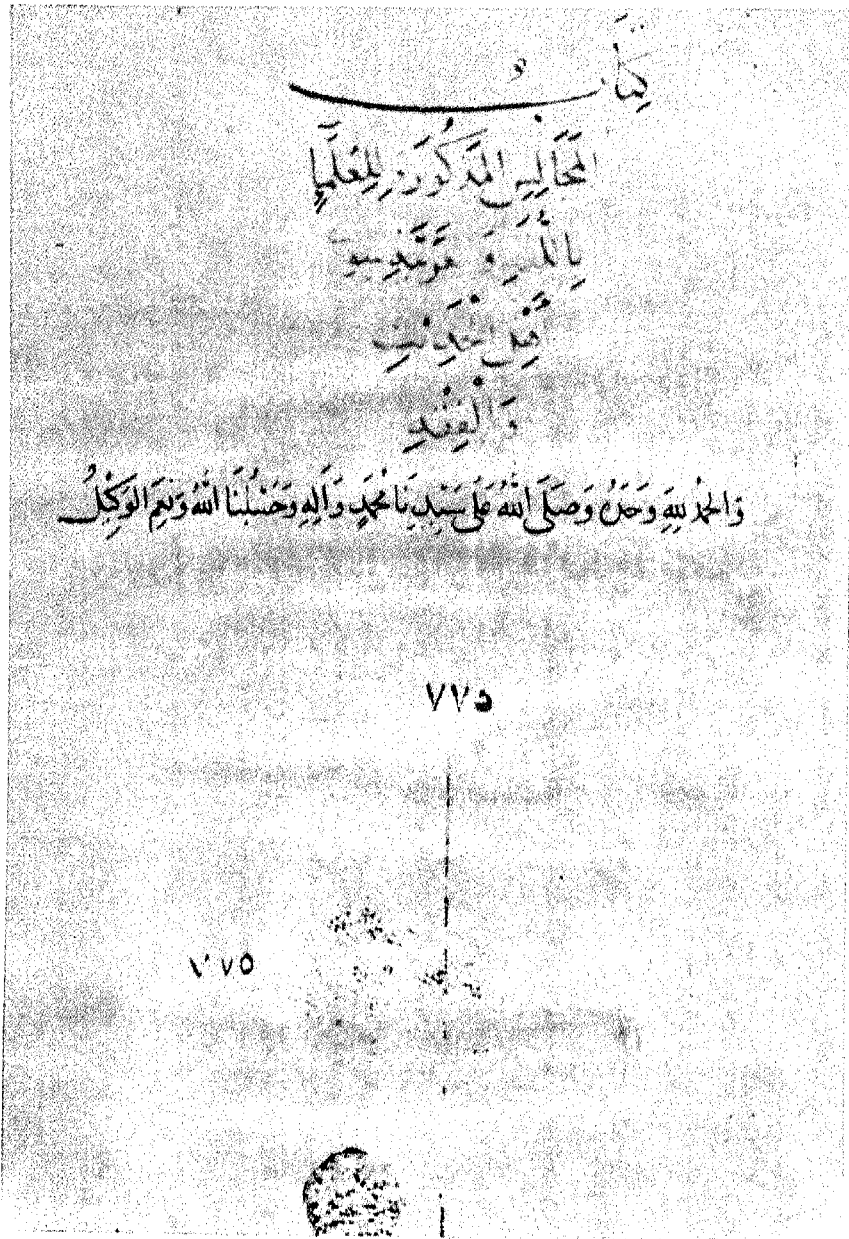 كِتَابُ
المَجَالِسِ المَذْكُورَةِ لِلعُلَمَاءِ
بِاللُّغَةِ وَ
وَالحَدِيثِ
وَالفِقْهِ
وَالحَمْدُ لِلَّهِ وَحْدَهُ وَصَلَّى اللَّهُ عَلَى سَيِّدِنَا مُحَمَّدٍ وَآلِهِ وَحَسْبُنَا اللَّهُ وَنِعْمَ الوَكِيلُ
٧٧٥
٧٧٥